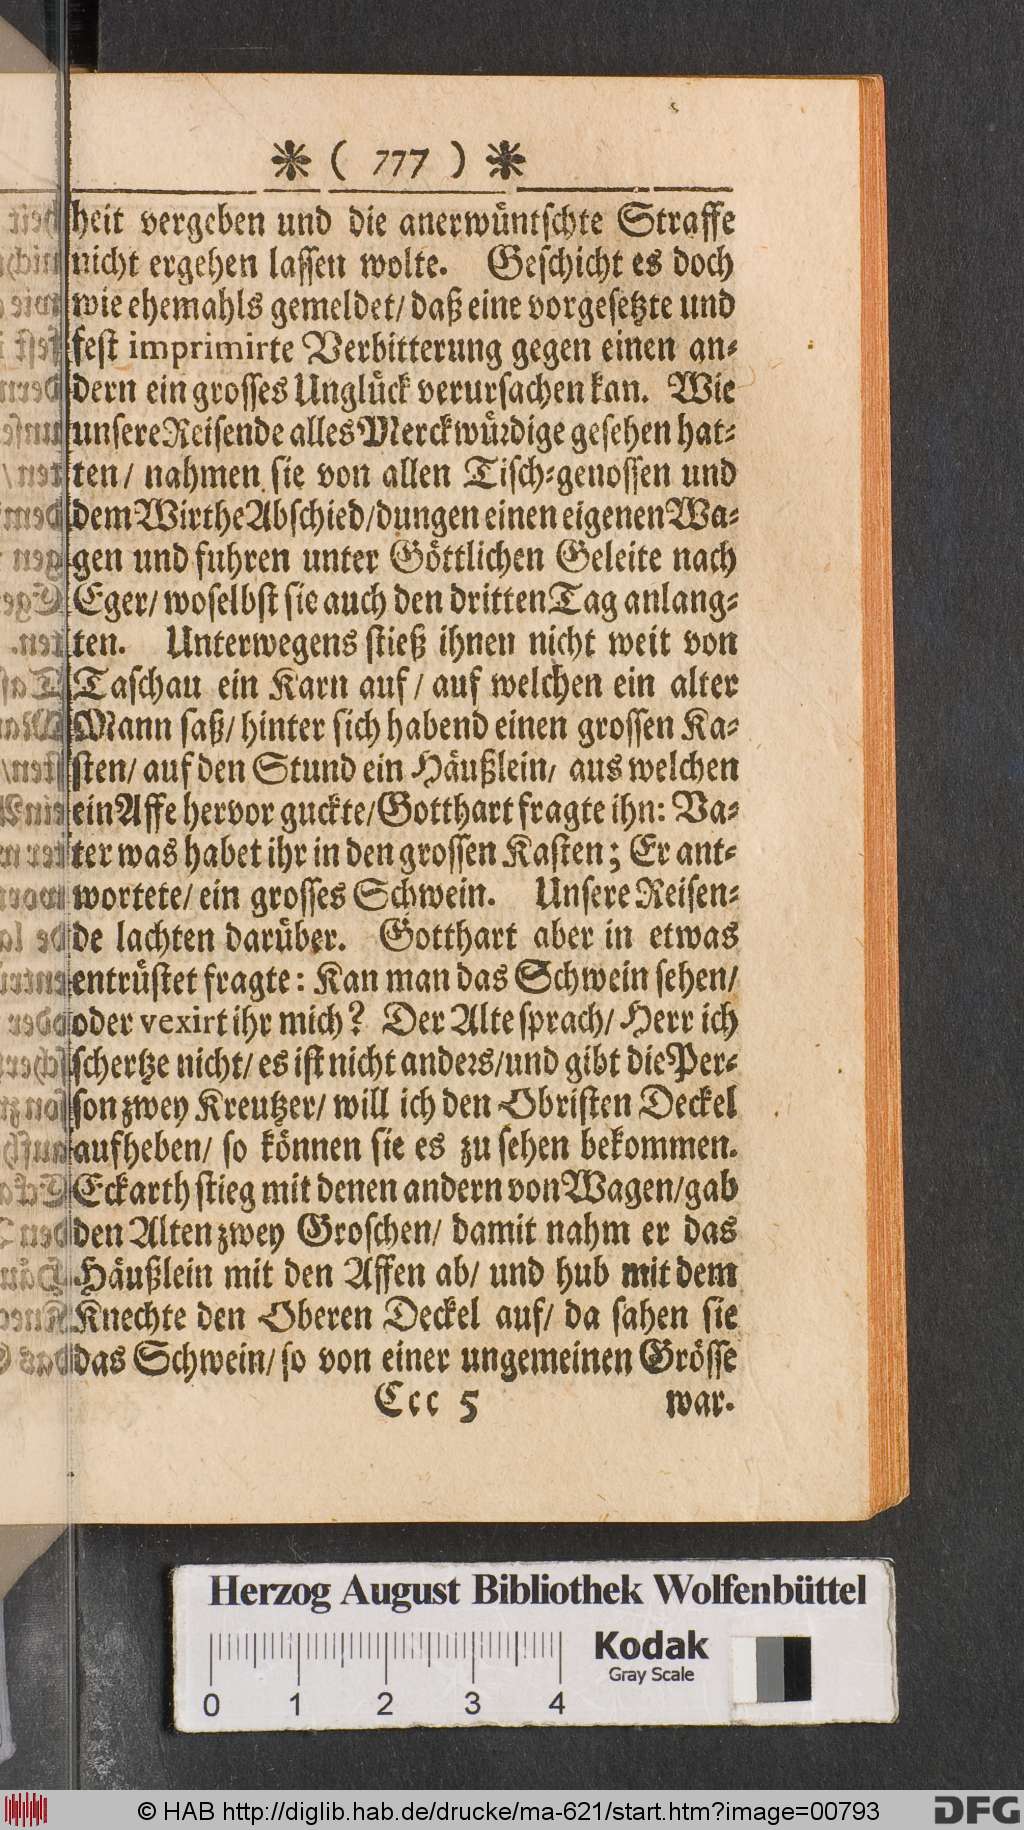 ❋ ( 777 ) ❋
heit vergeben und die anerwüntschte Straffe
nicht ergehen lassen wolte. Geschicht es doch
wie ehemahls gemeldet/ daß eine vorgesetzte und
fest imprimirte Verbitterung gegen einen an-
dern ein grosses Unglück verursachen kan. Wie
unsere Reisende alles Merckwürdige gesehen hat-
ten/ nahmen sie von allen Tisch-genossen und
dem Wirthe Abschied/ dungen einen eigenen Wa-
gen und fuhren unter Göttlichen Geleite nach
Eger/ woselbst sie auch den dritten Tag anlang-
ten. Unterwegens stieß ihnen nicht weit von
Taschau ein Karn auf/ auf welchen ein alter
Mann saß/ hinter sich habend einen grossen Ka-
sten/ auf den Stund ein Häußlein/ aus welchen
ein Affe hervor guckte/ Gotthart fragte ihn: Va-
ter was habet ihr in den grossen Kasten; Er ant-
wortete/ ein grosses Schwein. Unsere Reisen-
de lachten darüber. Gotthart aber in etwas
entrüstet fragte: Kan man das Schwein sehen/
oder vexirt ihr mich? Der Alte sprach/ Herr ich
schertze nicht/ es ist nicht anders/ und gibt die Per-
son zwey Kreutzer/ will ich den Obristen Deckel
aufheben/ so können sie es zu sehen bekommen.
Eckarth stieg mit denen andern von Wagen/ gab
den Alten zwey Groschen/ damit nahm er das
Häußlein mit den Affen ab/ und hub mit dem
Knechte den Oberen Deckel auf/ da sahen sie
das Schwein/ so von einer ungemeinen Grösse
Ccc 5 war.
Herzog August Bibliothek Wolfenbüttel
Kodak
Gray Scale
0 1 2 3 4
© HAB http://diglib.hab.de/drucke/ma-621/start.htm?image=00793
DFG